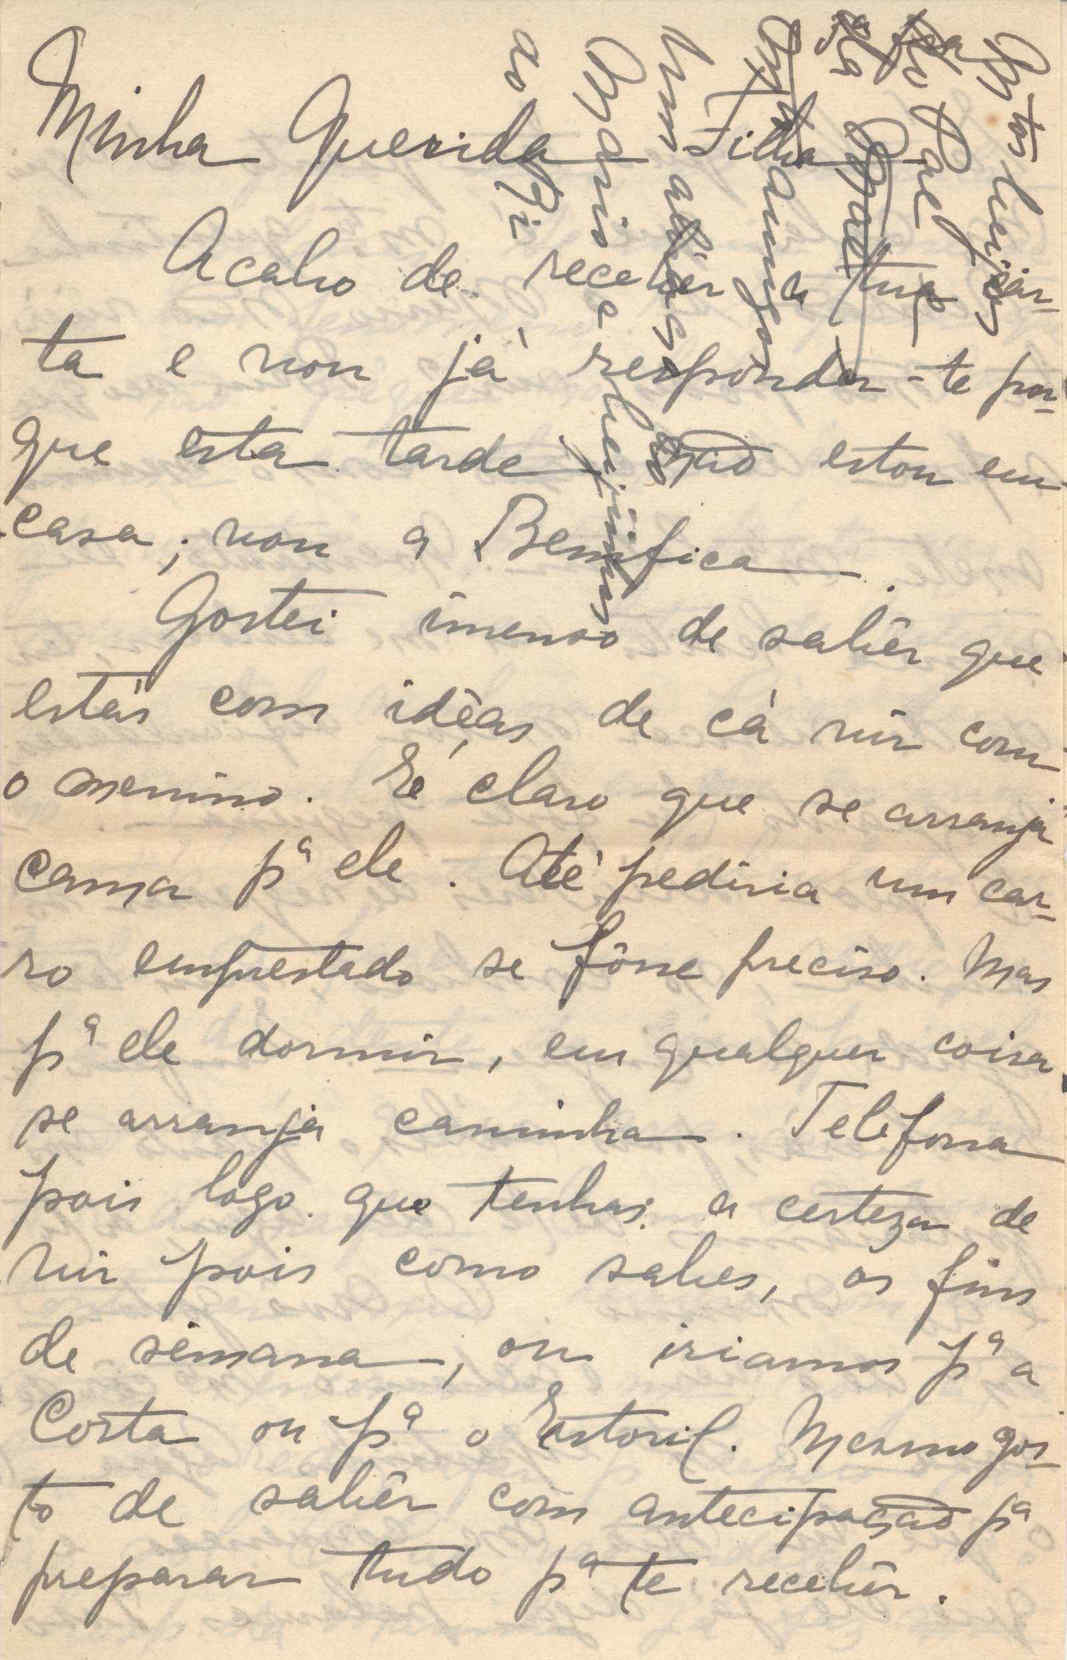 Minha Querida Filha
Acabo de recebêr a tua car-
ta e vou já responder-te por-
que esta tarde não estou em
casa; vou a Bemfica.
Gostei imenso de sabêr que
estás com idêas de cá vir com
o menino. É claro que se arranja
cama pª ele. Até pediria um car-
ro emprestado se fôsse preciso. Mas
pª ele dormir, em qualquer coisa
se arranja caminha. Telefona
pois logo que tenhas a certeza de
vir pois como sabes, os fins
de semana, ou iriamos pª a
Costa ou pª o Estoril. Mesmo gos-
to de sabêr com antecipação pª
preparar tudo pª te recebêr.
beijos
Pae
Um abraço ao
Mario e beijinhos
ao